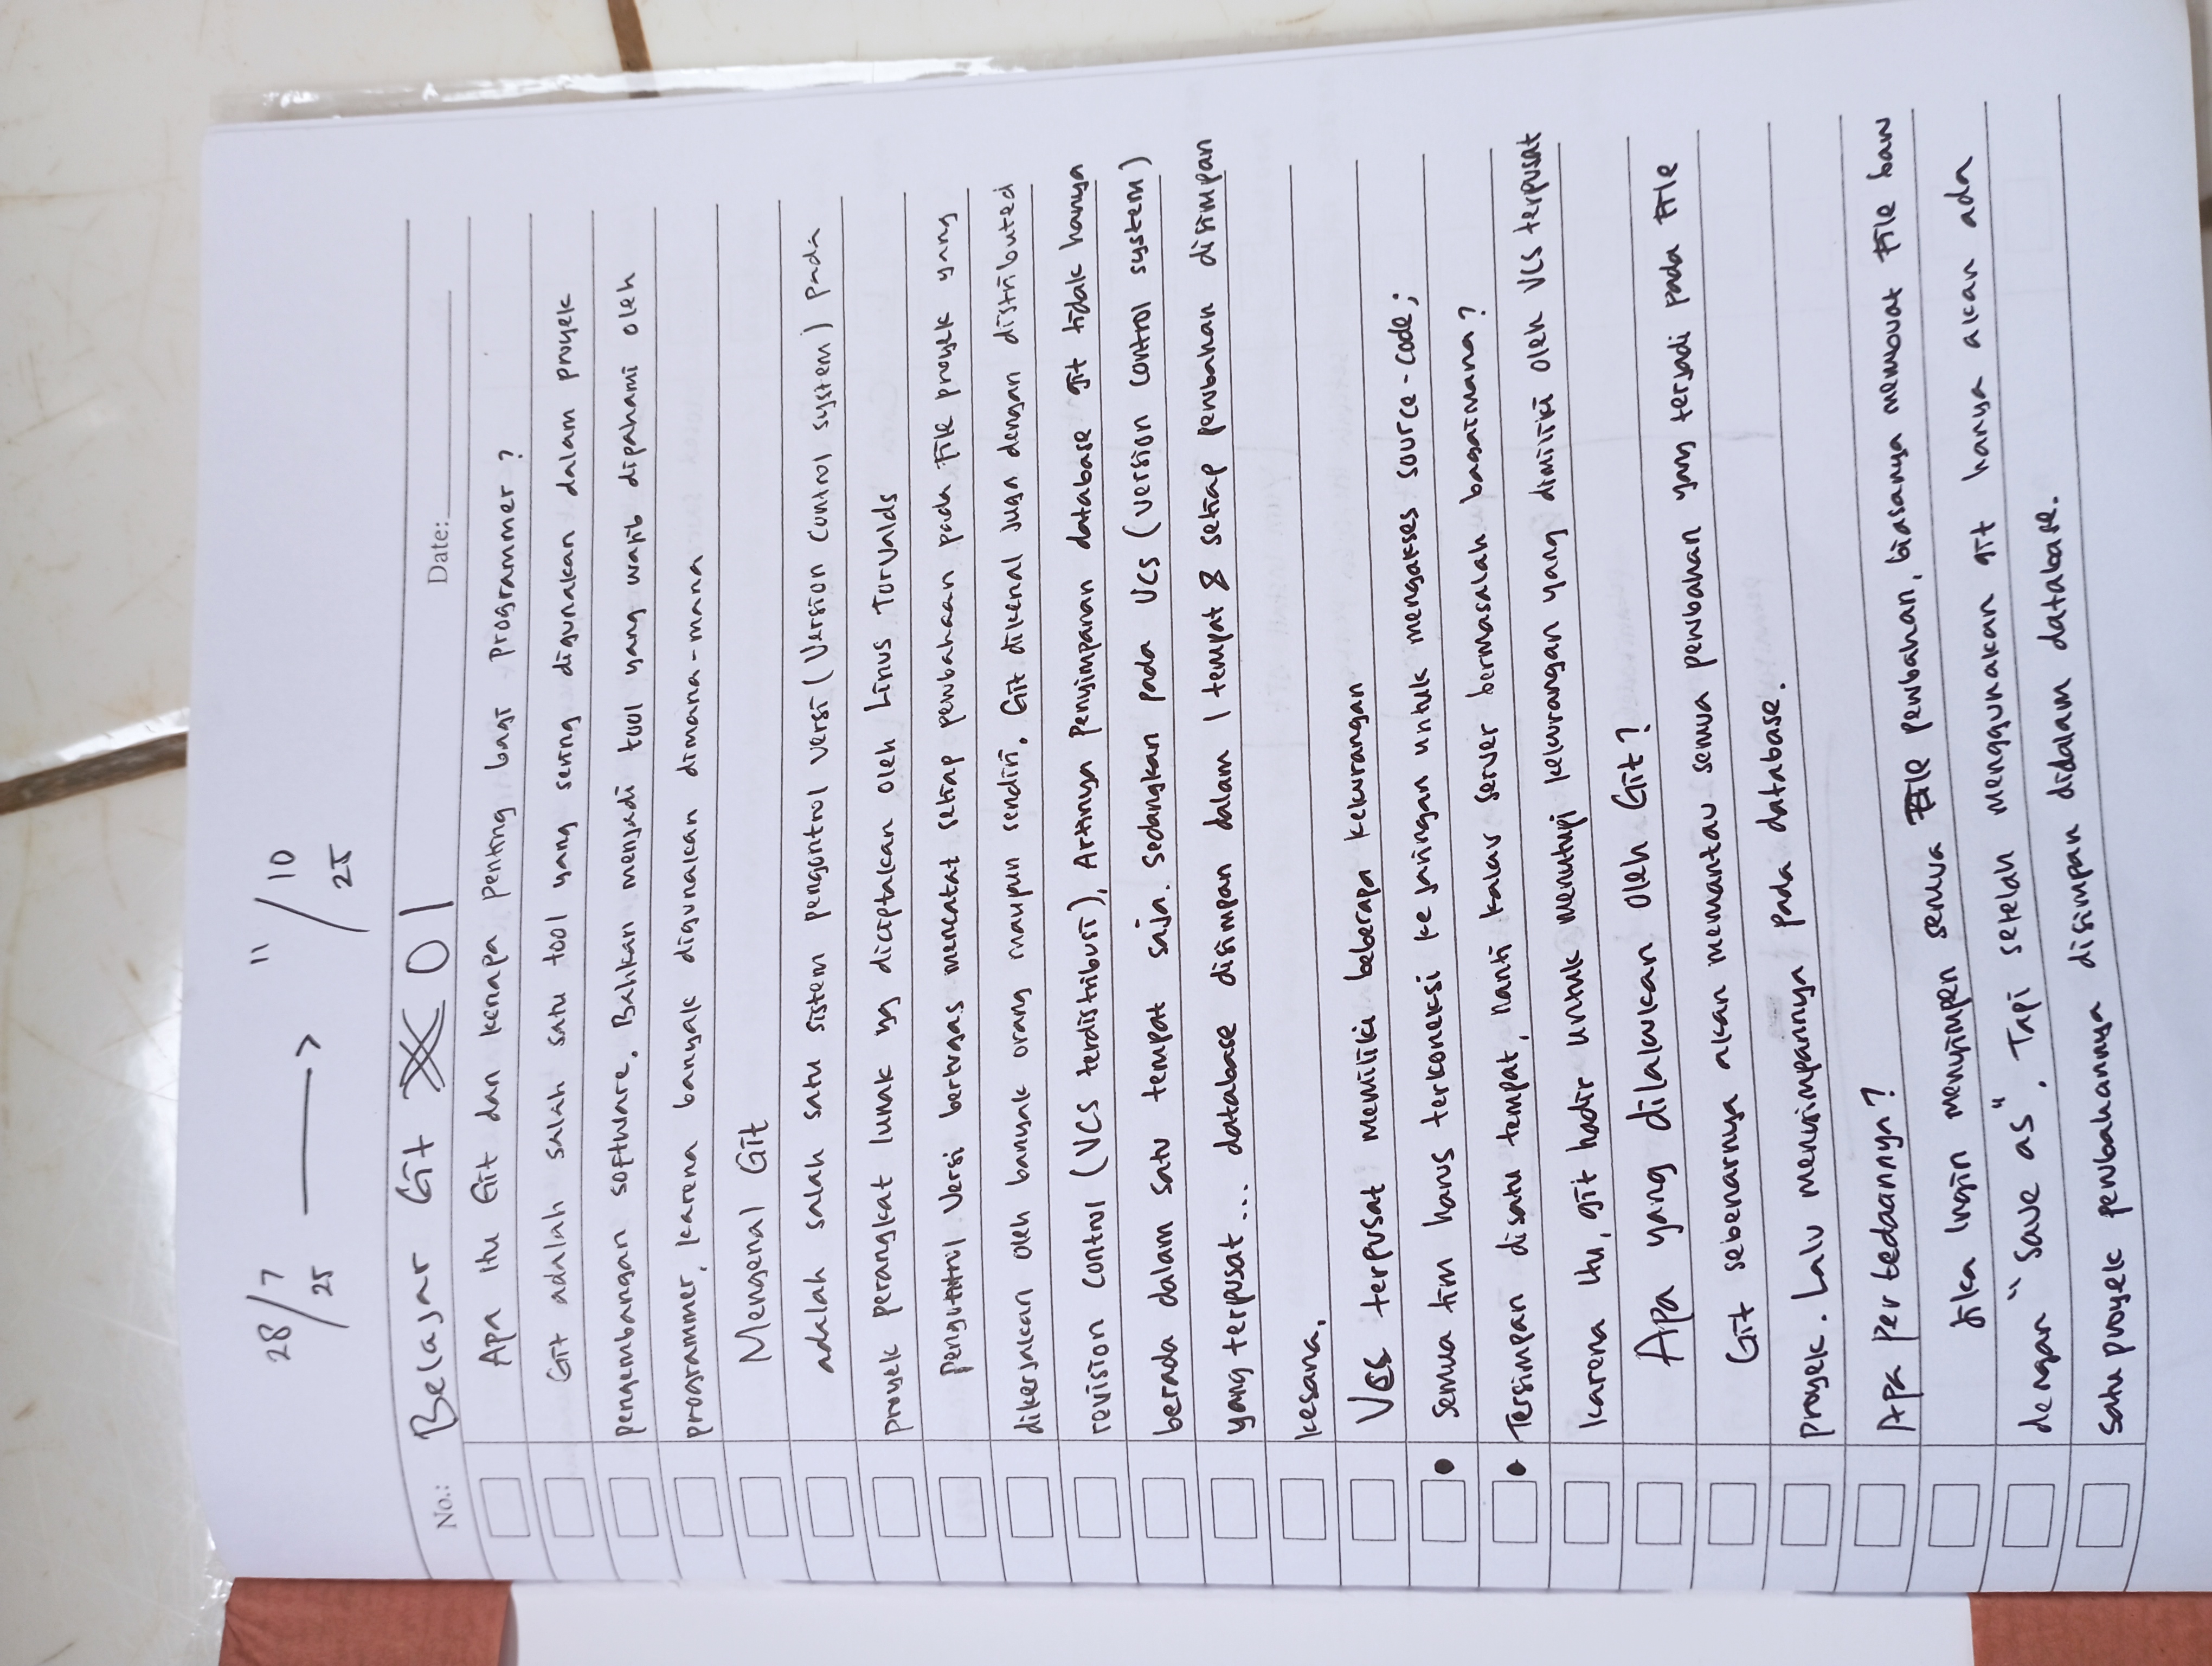 28/7 25 → 11/10 25
No.: Belajar Git 01 Date:
Apa itu Git dan kenapa penting bagi programmer?
Git adalah salah satu tool yang sering digunakan dalam proyek
pengembangan software. Bahkan menjadi tool yang wajib dipahami oleh
programmer, karena banyak digunakan dimana-mana
Mengenal Git
adalah salah satu sistem pengontrol versi (Version Control system) pada
proyek perangkat lunak yg diciptakan oleh Linus Torvalds
Pengontrol Versi bertugas mencatat setiap perubahaan pada File proyek yang
dikerjakan oleh banyak orang maupun sendiri. Git dikenal juga dengan distributed
revision control (VCS terdistribusi), Artinya penyimpanan database git tidak hanya
berada dalam satu tempat saja. Sedangkan pada VCS (version control system)
yang terpusat... database disimpan dalam 1 tempat & setiap perubahan disimpan
kesana.
VCS terpusat memiliki beberapa kekurangan
• Semua tim harus terkoneksi ke jaringan untuk mengakses source-code;
• Tersimpan disatu tempat, nanti kalau server bermasalah bagaimana?
Karena itu, git hadir untuk menutupi kekurangan yang dimiliki oleh VCS terpusat
Apa yang dilakukan oleh Git?
Git sebenarnya akan memantau semua perubahan yang terjadi pada File
proyek. Lalu menyimpannya pada database.
Apa Perbedaannya?
Jika Ingin menyimpen semua File perubahan, biasanya membuat File baru
dengan "Save as". Tapi setelah menggunakan git hanya akan ada
satu proyek perubahannya disimpan didalam database.